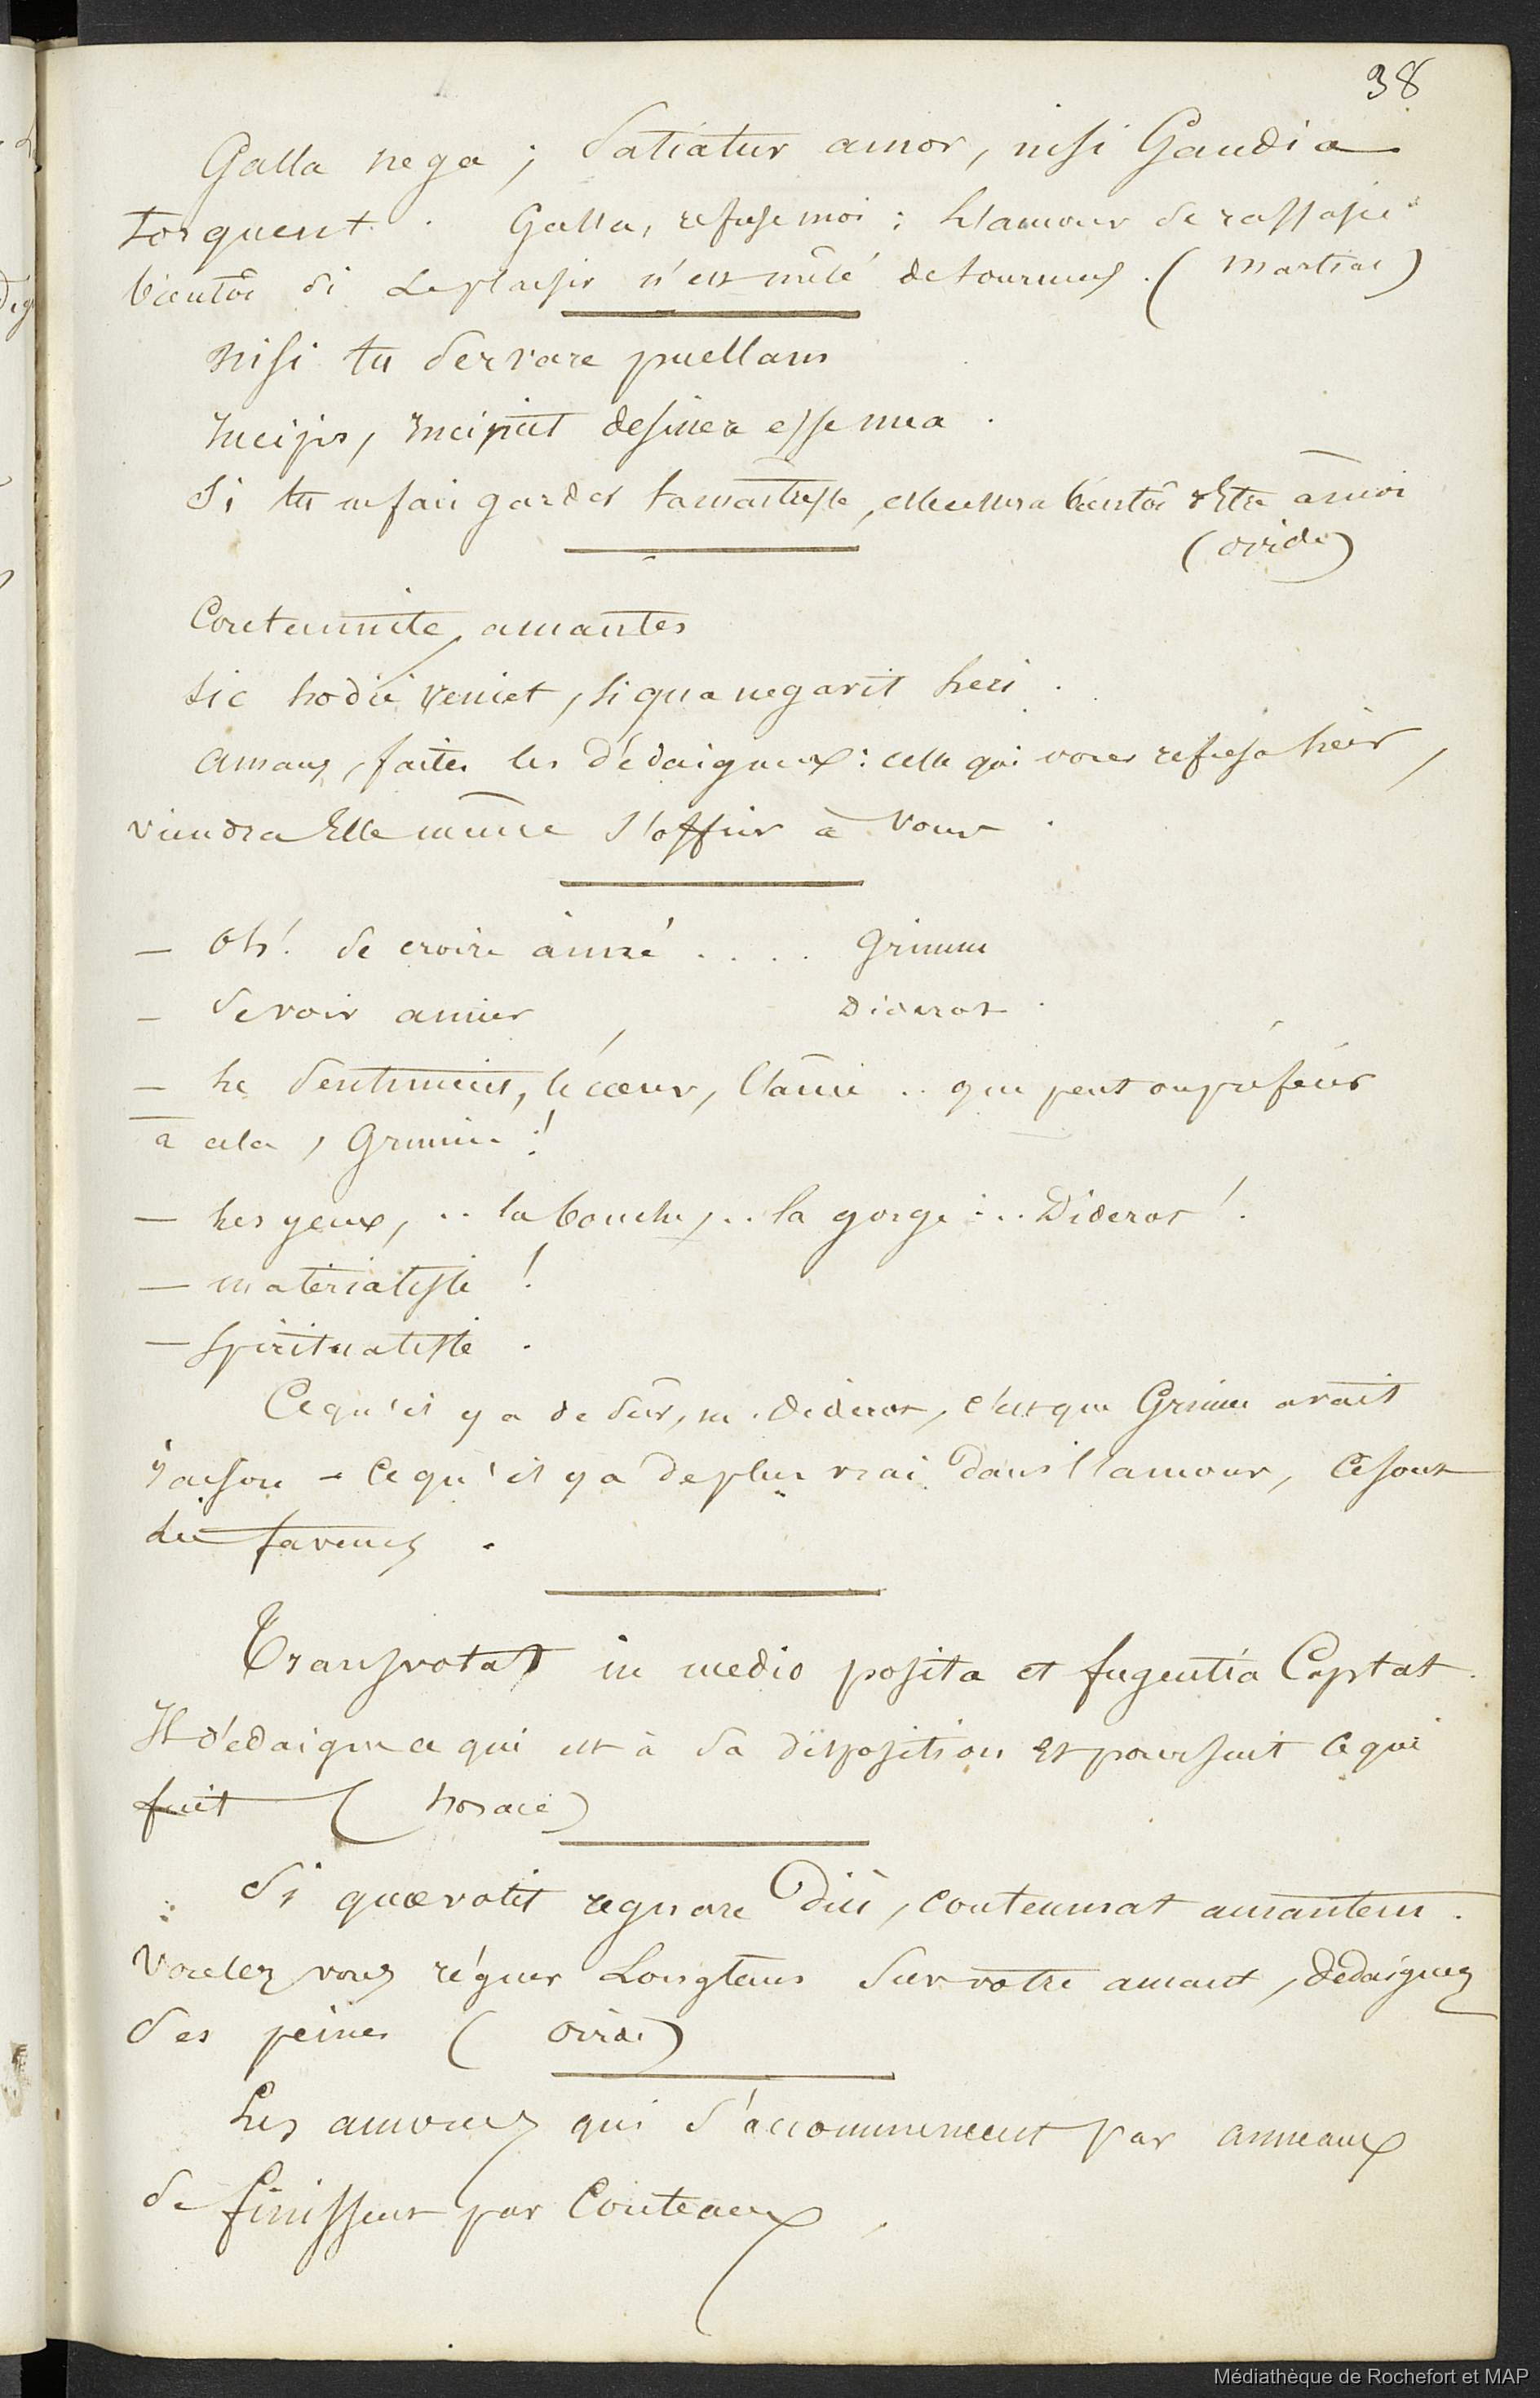 38
Galla nega ; Satiatur amor, nisi Gaudia
torquent. Galla, refuse moi : L'amour se rassasie
bientôt si Le plaisir n'est mêlé de tourmens. (Martial)
Nisi tu servare puellam
Incipis, Incipiet desinere esse mea.
Si tu ne fais garder ta maitresse, elle cessera bientôt d'Etre à moi
(ovide)
Contemnite, amantes
sic hodiè veniet, si qua negavit heri.
Amans, faites les dédaigneux : celle qui vous refusa hier,
viendra Elle même s'offrir à vous.
— Oh! se croire aimé .... Grimm
— Se voir aimer, Diderot.
— Le Sentiment, le cœur, l'âme .. que peut on préférer
à cela, Grimm !
— Les yeux, .. la bouche, .. la gorge ... Diderot !
— matérialiste !
— Spiritualiste.
Ce qu'il y a de sûr, m. Diderot, c'est que Grimm avait
raison – Ce qu'il y a de plus vrai dans l'amour, Ce sont
les faveurs.
Transvolat in medio posita et fugentia Captat.
Il dédaigne ce qui est à sa disposition Et poursuit ce qui
fuit (horace)
Si quæ volet regnare Diù, contemnat amantem.
Voulez vous régner Longtems Sur votre amant, dédaignez
Ses peines (Ovide)
Les amours qui s'accommencent par anneaux
Se finissent par Couteaux,
Médiathèque de Rochefort et MAP